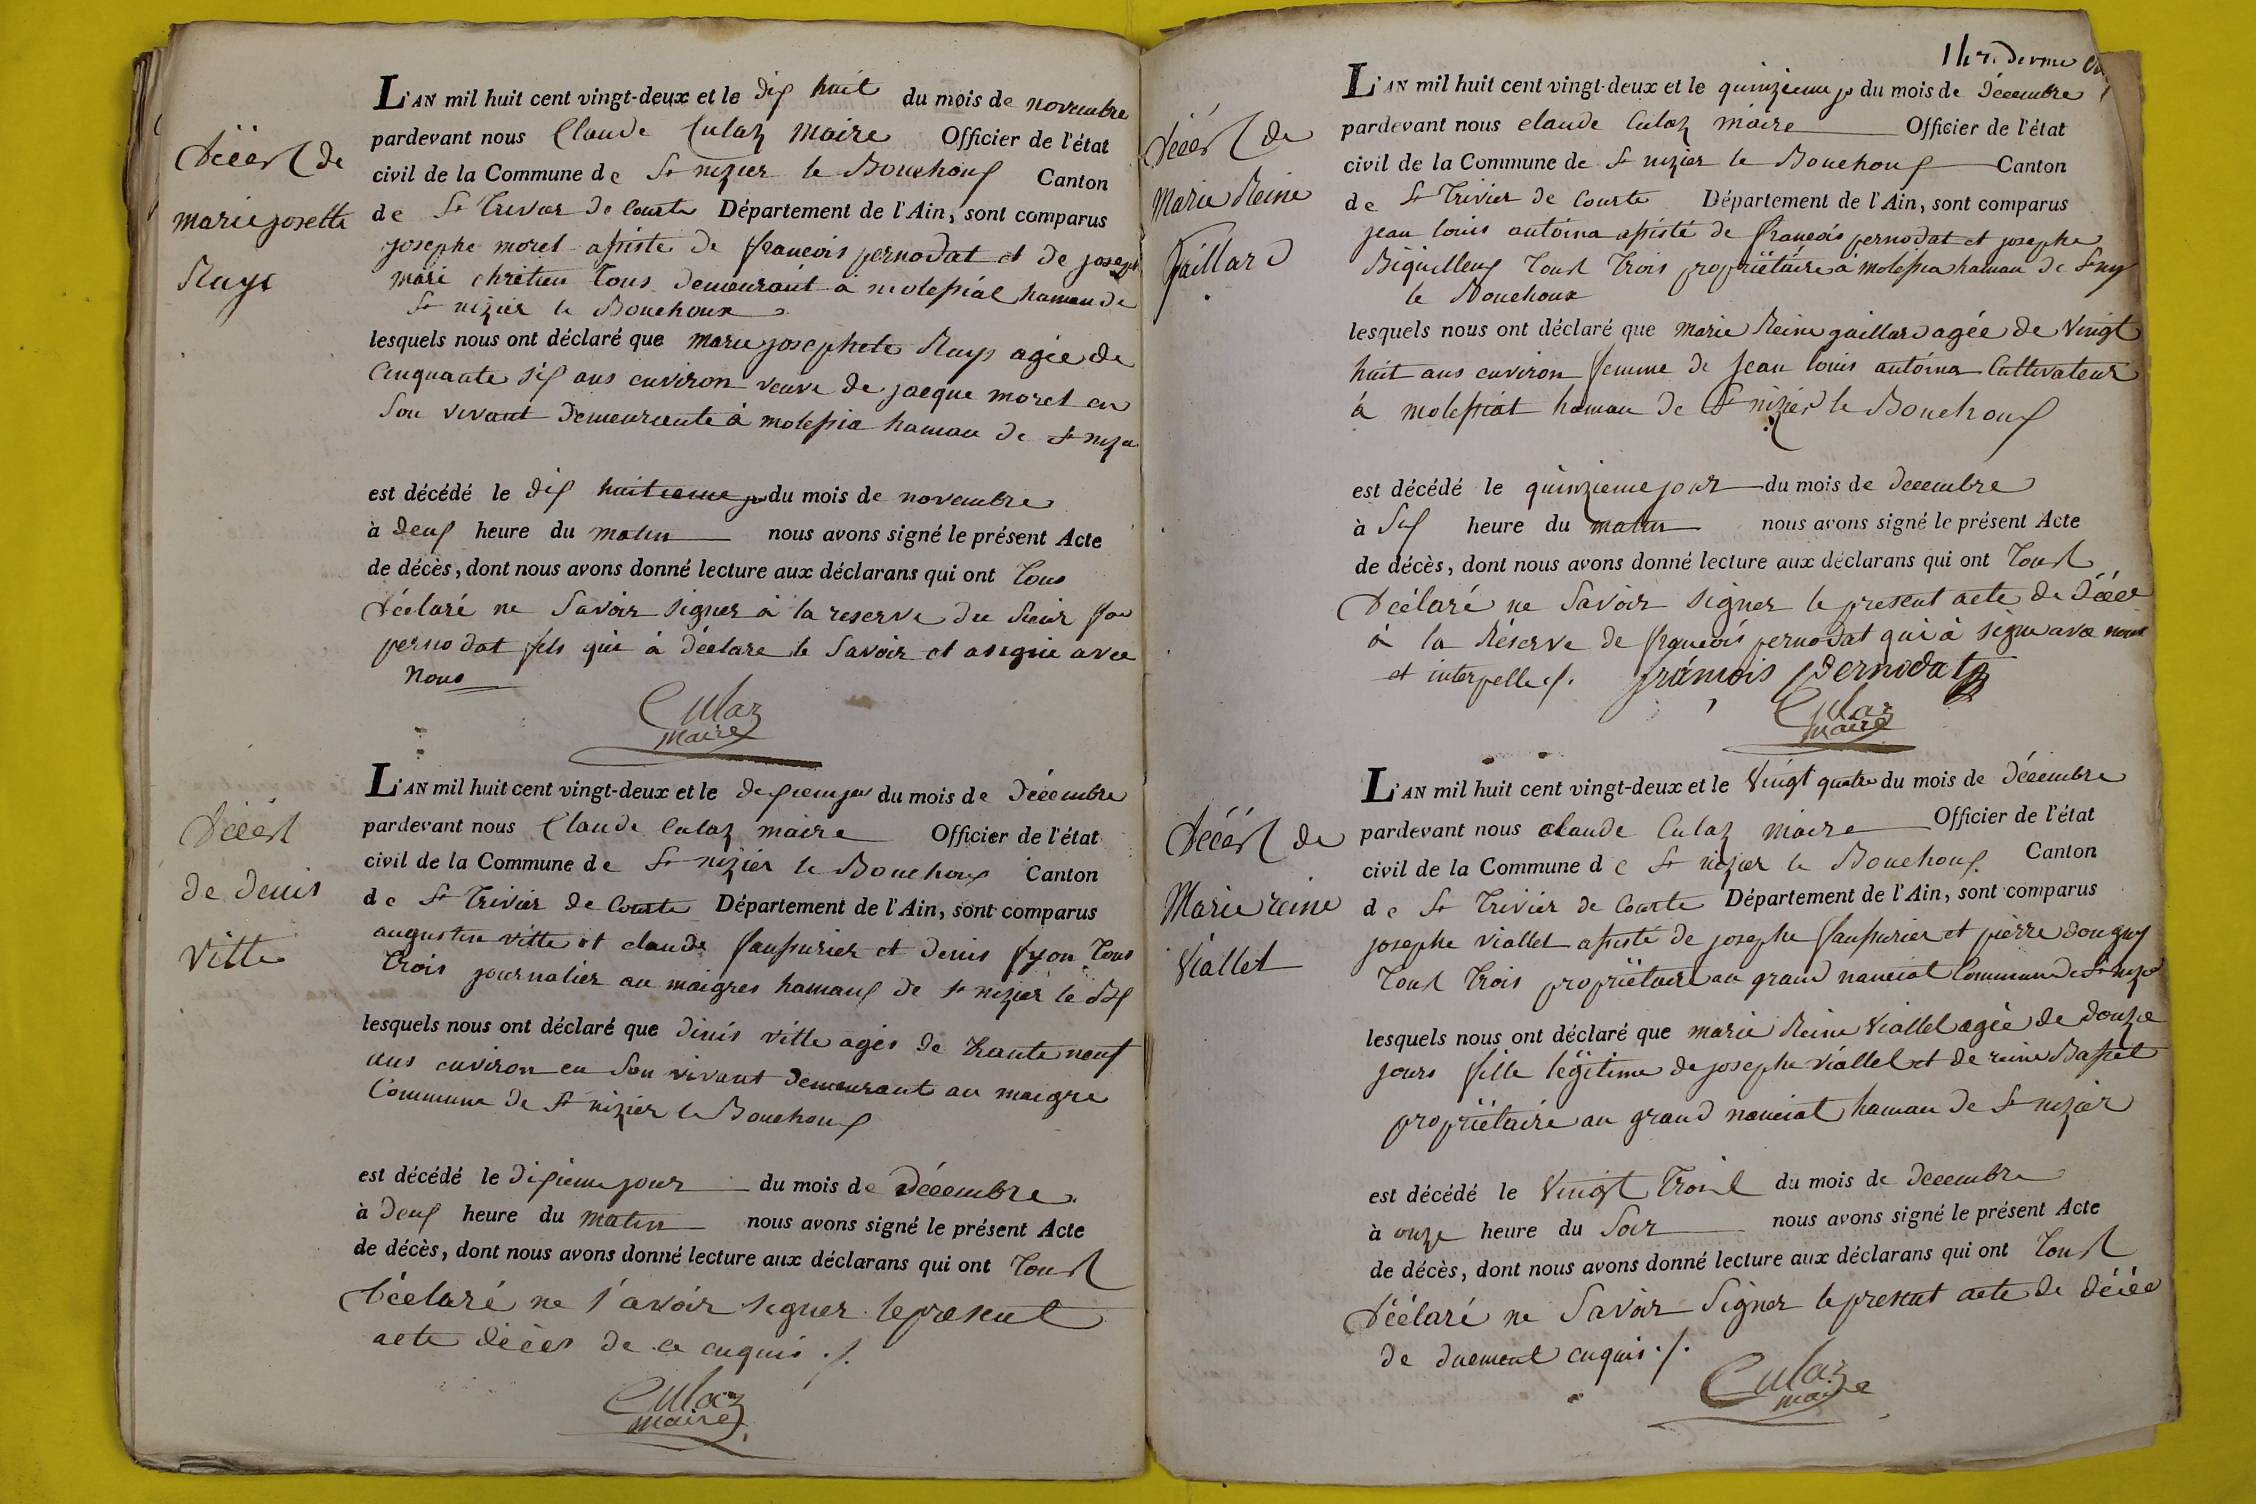 Décès de
marie josette
Rays
L'AN mil huit cent vingt-deux et le dix huit du mois de novembre
pardevant nous Claude Culaz maire Officier de l'état
civil de la Commune de St nizier le Bouchoux Canton
de St trivier de Courte Département de l'Ain, sont comparus
josephe morel assisté de francois pernodat et de joseph
mari chretien tous demeurant a molessiat hamau de
St nizier le Bouchoux
lesquels nous ont déclaré que marie josephete Rays agée de
Cinquante six ans environ veuve de jacque morel en
son vivant demeurante à molessia hamau de St nizie
est décédé le dix huitieme jr du mois de novembre
à deux heure du matin nous avons signé le présent Acte
de décès, dont nous avons donné lecture aux déclarans qui ont tous
déclaré ne savoir signer à la reserve du sieur fois
pernodat fils qui à déclare le savoir et a signé avec
Nous
Culaz
maire
Décès
de denis
Vitte
L'AN mil huit cent vingt-deux et le dixieme jour du mois de Décembre
pardevant nous Claude Culaz maire Officier de l'état
civil de la Commune de St nizier le Bouchoux Canton
de St Trivier de Courte Département de l'Ain, sont comparus
augustin vitte et claude faussurier et denis fyon tous
trois journalier au maigres hamaux de St nizier le Bx
lesquels nous ont déclaré que dinis vitte agés de trante neuf
ans environ en son vivant demeurant au maigre
Commune de St nizier le Bouchoux
est décédé le dixieme jour du mois de décembre
à deux heure du matin nous avons signé le présent Acte
de décès, dont nous avons donné lecture aux déclarans qui ont tous
déclaré ne s'avoir signer le present
acte décès de ce enquis ./.
Culaz
maire
Décès de
Marie Reine
Gaillard
L'AN mil huit cent vingt-deux et le quinzieme jr du mois de décembre
pardevant nous claude Culaz maire Officier de l'état
civil de la Commune de St nizier le Bouchoux Canton
de St Trivier de Courte Département de l'Ain, sont comparus
jean louis antoina assisté de francois pernodat et josephe
Biguilleux tous trois propriëtaire à molessia hamau de St ny
le Bouchoux
lesquels nous ont déclaré que marie Reine gaillard agée de vingt
huit ans environ femme de jean louis antoina Cultivateur
à molessiat hamau de St nizier le Bouchoux
est décédé le quinzieme jour du mois de decembre
à six heure du matin nous avons signé le présent Acte
de décès, dont nous avons donné lecture aux déclarans qui ont tous
déclaré ne savoir signer le present acte de décé
à la réserve de francois pernodat qui à signe avec nous
et interpelle ./. françois Pernodat
Culaz
maire
Décès de
Marie reine
Viallet
L'AN mil huit cent vingt-deux et le Vingt quatre du mois de Décembre
pardevant nous claude Culaz maire Officier de l'état
civil de la Commune de St nizier le Bouchoux Canton
de St Trivier de Courte Département de l'Ain, sont comparus
josephe viallet assiste de josephe faussurier et pierre donguy
tous trois propriëtaire au grand nanciat Commune de St nizie
lesquels nous ont déclaré que marie Reine Viallet agée de douze
jours fille légitime de josephe viallet et de reine Basset
propriëtaire au grand nanciat hamau de St nizier
est décédé le Vingt trois du mois de decembre
à onze heure du soir nous avons signé le présent Acte
de décès, dont nous avons donné lecture aux déclarans qui ont tous
déclaré ne savoir signer le present acte de décé
de duement enquis ./.
Culaz
maire